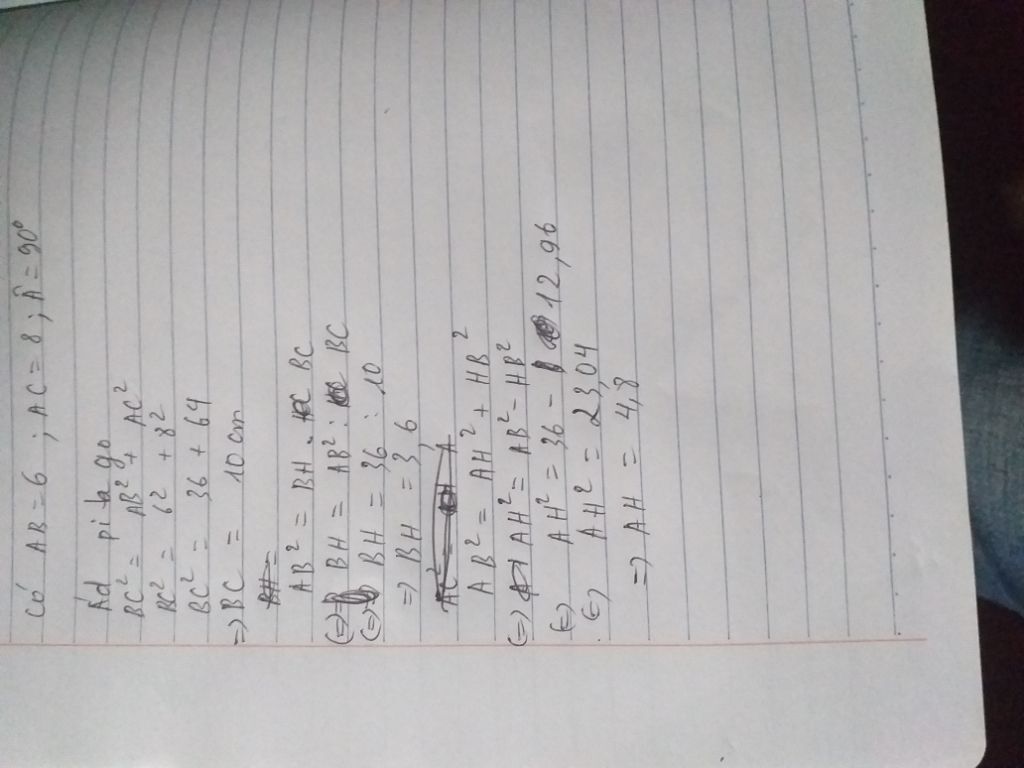 Có AB = 6 ; AC = 8 ; Â = 90°
Ád pi ta go
BC² = AB² + AC²
BC² = 6² + 8²
BC² = 36 + 64
=) BC = 10 cm
BH =
AB² = BH . BC
(=) BH = AB² : BC
(=) BH = 36 : 10
=) BH = 3,6
AB² = AH² + HB²
(=) AH² = AB² - HB²
(=) AH² = 36 - 12,96
(=) AH² = 23,04
=) AH = 4,8